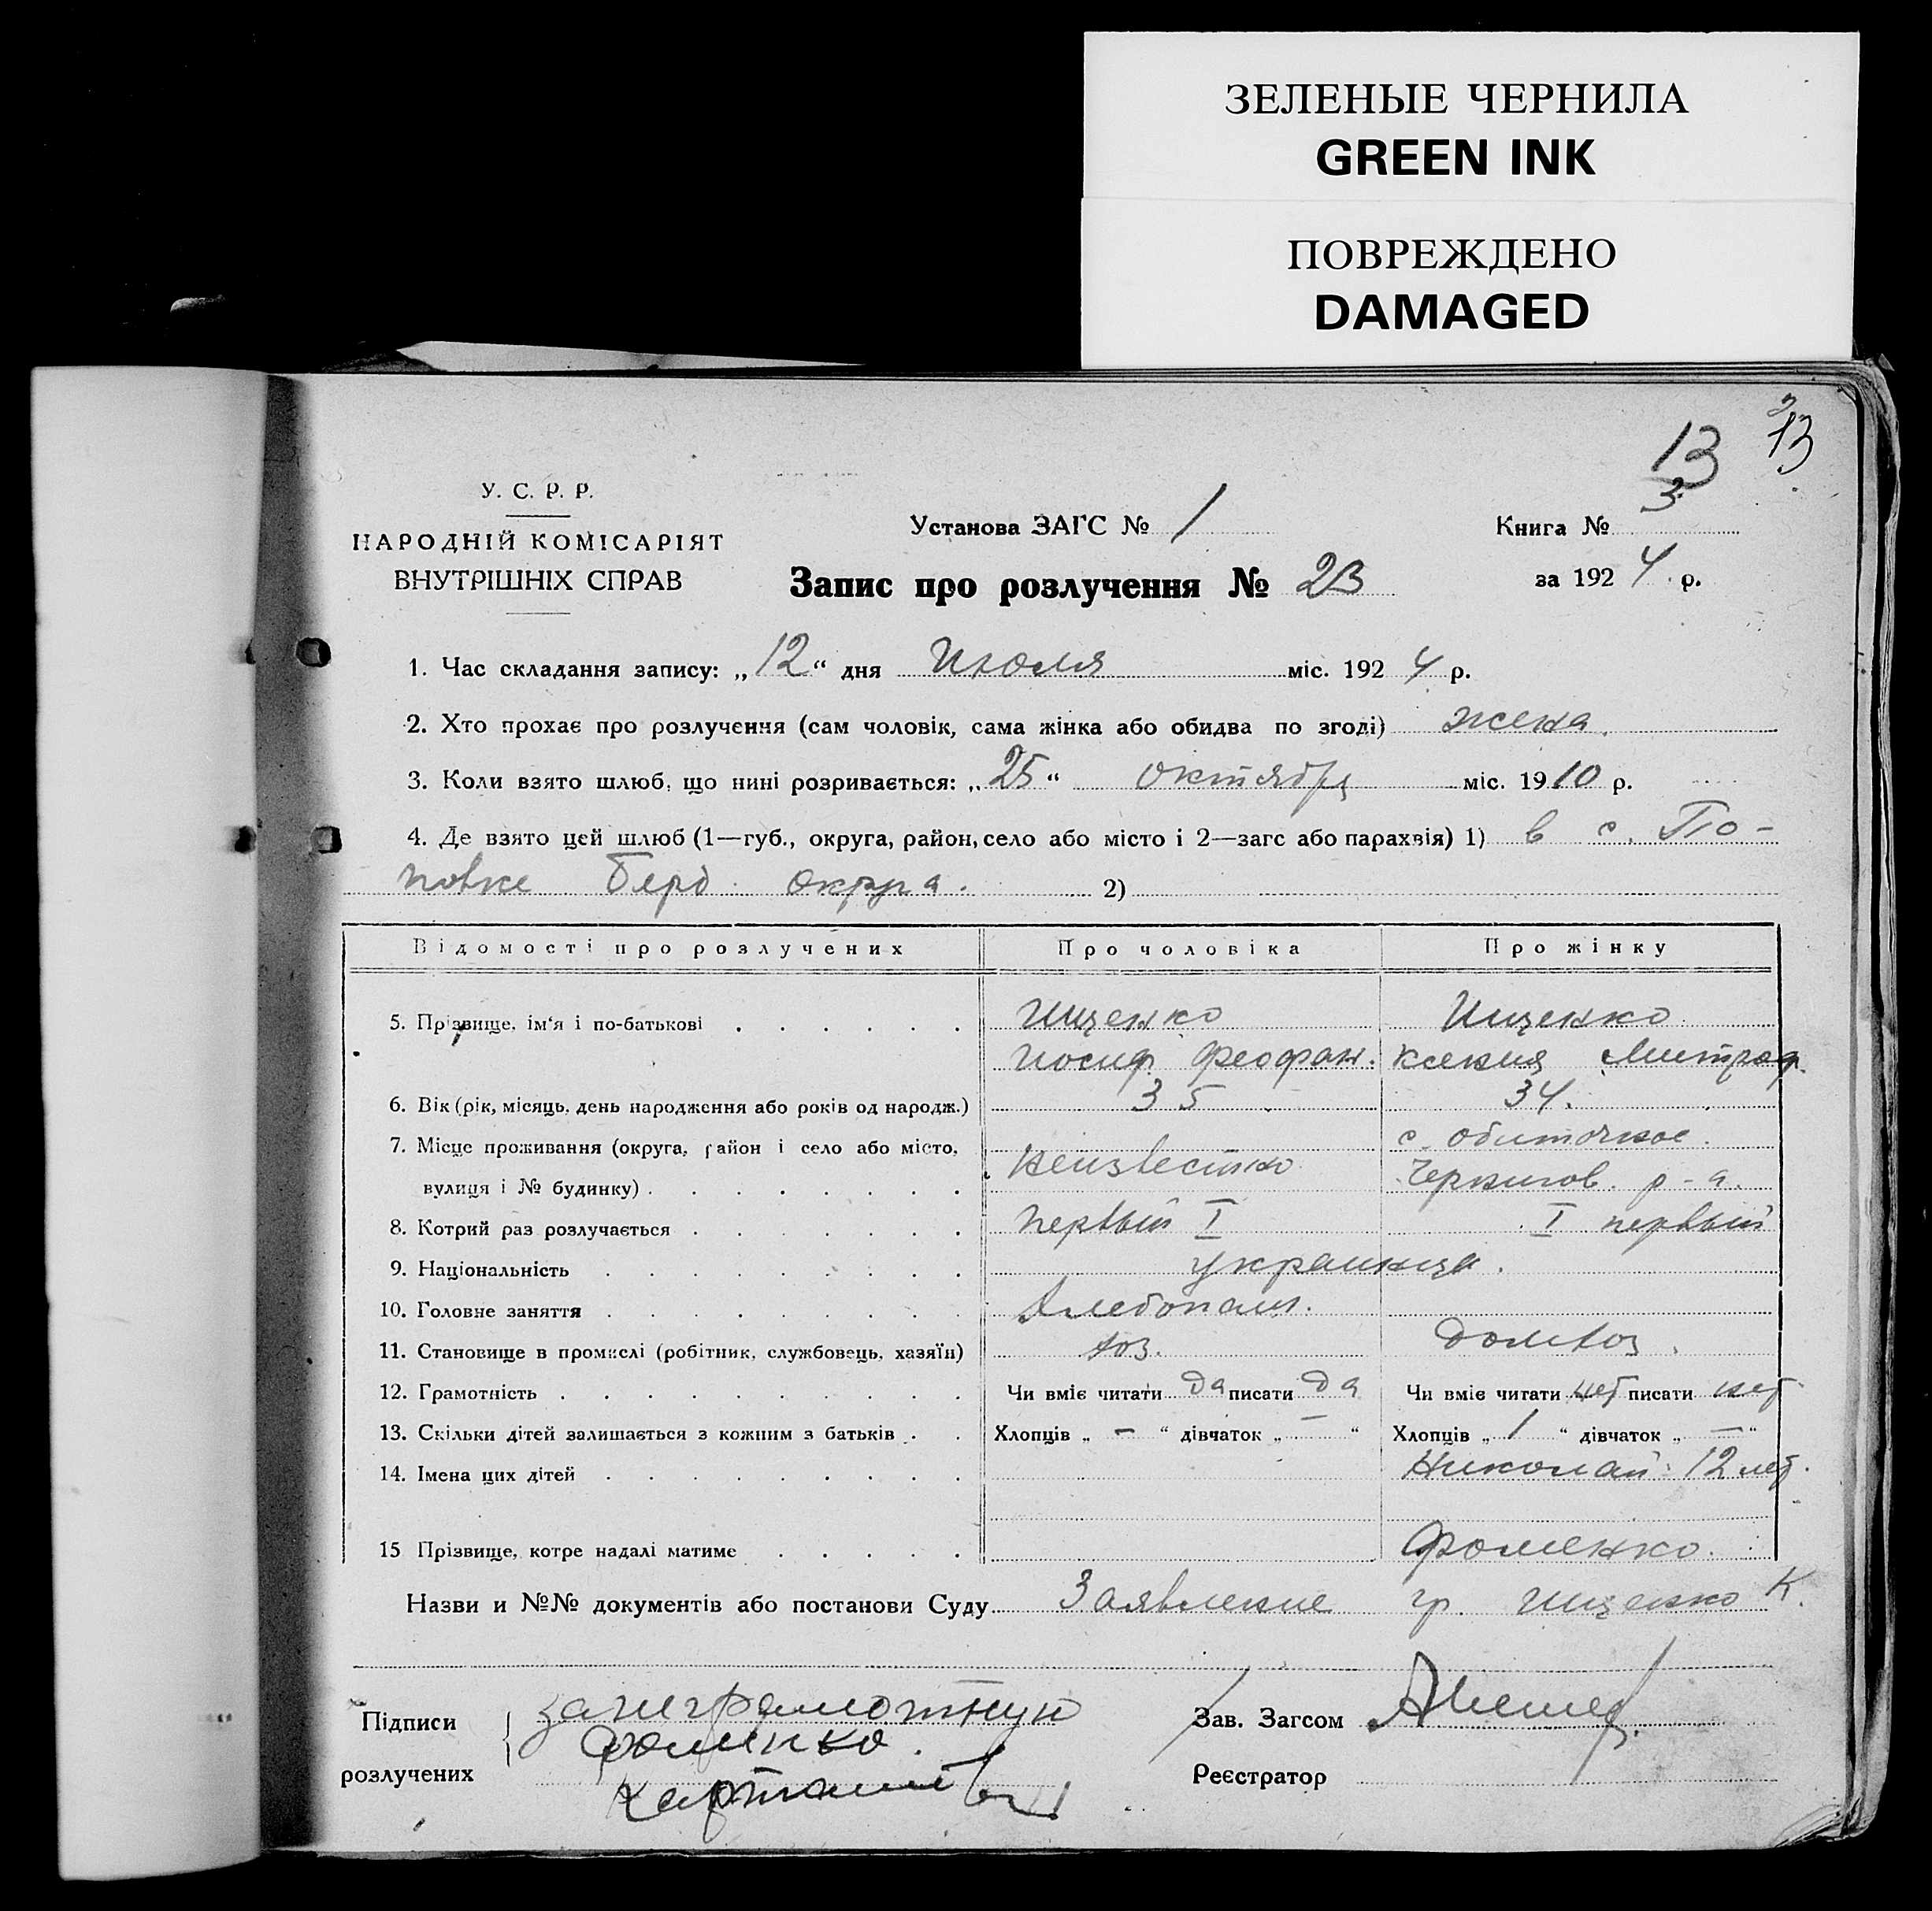 ЗЕЛЕНЫЕ ЧЕРНИЛА
GREEN INK
ПОВРЕЖДЕНО
DAMAGED
13 13
У. С. Р. Р.
НАРОДНІЙ КОМІСАРІЯТ
ВНУТРІШНІХ СПРАВ
Установа ЗАГС № 1
Книга № 3
за 1924 р.
Запис про розлучення № 23
1. Час складання запису: „12“ дня Июля міс. 1924 р.
2. Хто прохає про розлучення (сам чоловік, сама жінка або обидва по згоді) жена.
3. Коли взято шлюб, що нині розривається: „25“ октября міс. 1910 р.
4. Де взято цей шлюб (1—губ., округа, район, село або місто і 2—загс або парахвія) 1) в с. По-
повке Берд. округа. 2)
Відомості про розлучених Про чоловіка Про жінку
5. Прізвище, ім‘я і по-батькові Ищенко Ищенко
Иосиф Феофан. Ксения Митроф.
6. Вік (рік, місяць, день народження або років од народж.) 35 34.
7. Місце проживання (округа, район і село або місто, с. Обиточное.
вулиця і № будинку) неизвестно Чернигов. р-а.
8. Котрий раз розлучається первый I I первый
9. Національність украинца.
10. Головне заняття хлебопаш.
11. Становище в промислі (робітник, службовець, хазяїн) хоз. домхоз.
12. Грамотність Чи вміє читати да писати да Чи вміє читати нет писати нет
13. Скільки дітей залишається з кожним з батьків Хлопців „ — “ дівчаток „ — “ Хлопців „ 1 “ дівчаток „ — “
14. Імена цих дітей Николай 12 лет.
15 Прізвище, котре надалі матиме Фоменко.
Назви и №№ документів або постанови Суду Заявление гр. Ищенко К.
Підписи за неграмотную
Фоменко.
розлучених
Зав. Загсом
Реєстратор